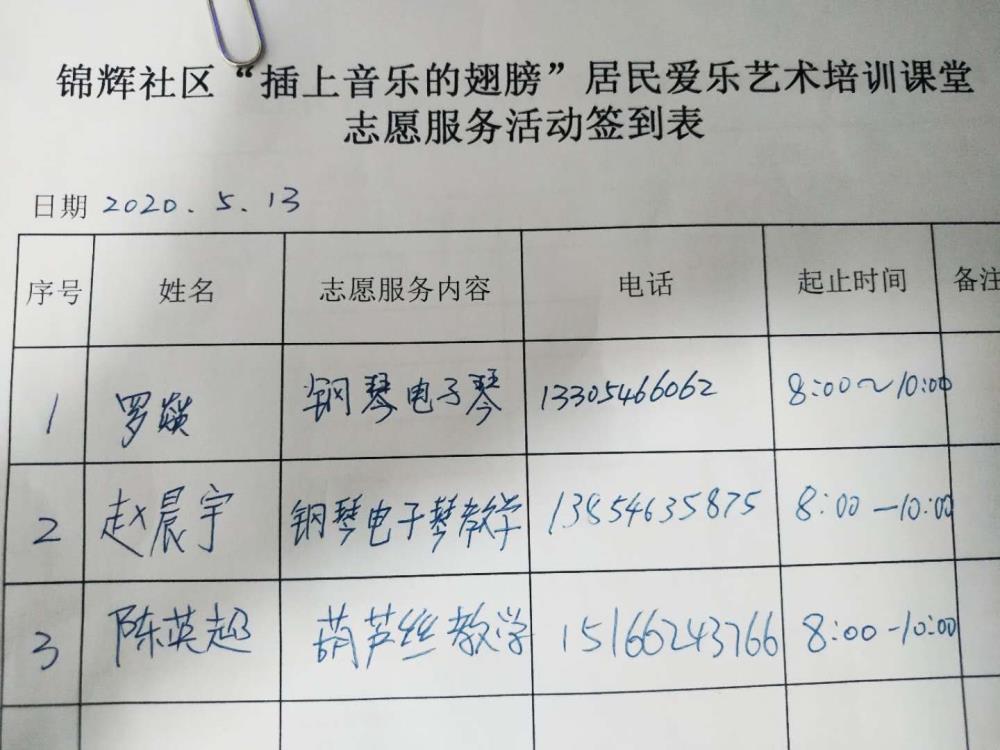 锦辉社区“插上音乐的翅膀”居民爱乐艺术培训课堂
志愿服务活动签到表
日期 2020.5.13
序号 姓名 志愿服务内容 电话 起止时间 备注
1 罗燚 钢琴电子琴 13305466062 8:00~10:00
2 赵晨宇 钢琴电子琴教学 13854635875 8:00—10:00
3 陈英超 葫芦丝教学 15166243766 8:00-10:00